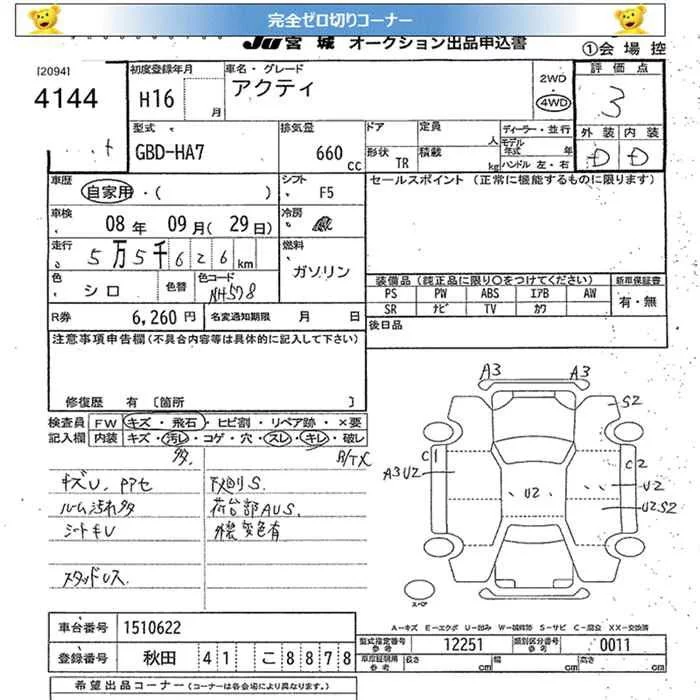 完全ゼロ切りコーナー
JU 宮 城 オークション出品申込書
①会 場 控
[2094]
4144
初度登録年月
H16
月
車名・グレード
アクティ
2WD
4WD
評 価 点
3
型式
GBD-HA7
排気量
660
cc
ドア
定員
人
形状
TR
積載
kg
ディーラー・並行
モデル年式
年
ハンドル 左・右
外 装
内 装
D
D
車歴
自家用・( )
シフト
F5
セールスポイント (正常に機能するものに限ります)
車検
08 年 09 月( 29 日)
冷房
走行
5 万 5 千 6 2 6 km
燃料
ガソリン
色
シロ
色替
色コード
NH578
装備品 (純正品に限り〇をつけてください)
新車保証書
PS PW ABS エアB AW
有・無
SR ナビ TV カワ
R券
6,260 円
名変通知期限 月 日
後日品
注意事項申告欄(不具合内容等は具体的に記入して下さい)
修復歴 有 [箇所 ]
検査員
記入欄
FW キズ・飛石・ヒビ割・リペア跡・×要
内装 キズ・汚レ・コゲ・穴・スレ・キレ・破レ
多
キズU. PPセ
ルーム汚れ多
シートキU
スタッドレス
下廻りS.
荷台部AUS.
外装変色有
A3 A3
S2
C1
A3U2
C2
U2
U2
U2S2
スペア
A－キズ E－エクボ U－凹み W－補修跡 S－サビ C－腐食 XX－交換済
車台番号
1510622
型式指定番号
参考
12251
類別区分番号
参考
0011
登録番号
秋田 4 1 こ 8 8 7 8
車庫証明用
参考
長さ cm
幅 cm
高さ cm
希望出品コーナー (コーナーは各会場により異なります。)